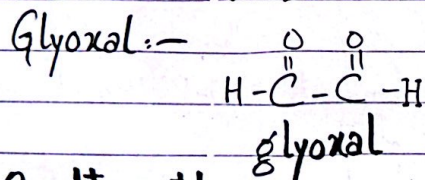 Glyoxal:-
O O
|| ||
H-C-C-H
glyoxal